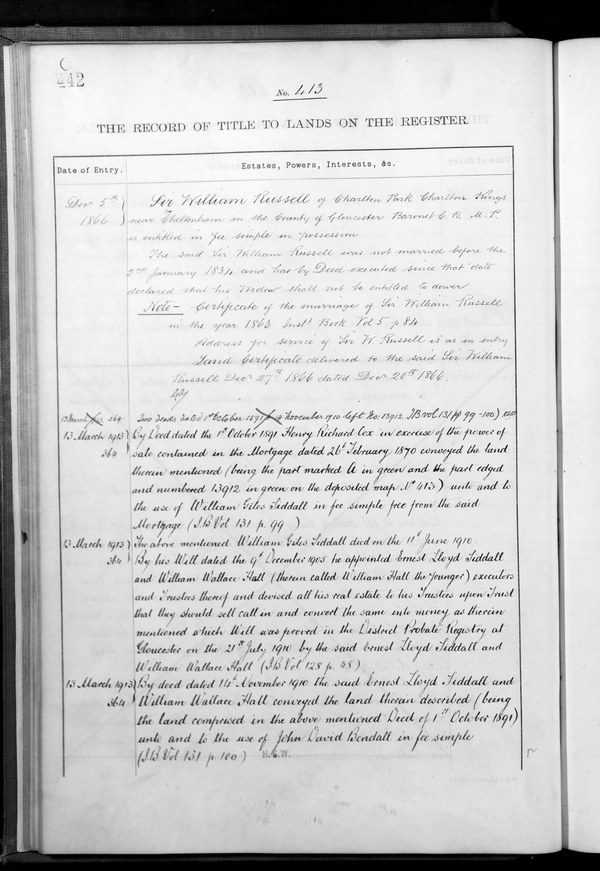 442
No. 413
THE RECORD OF TITLE TO LANDS ON THE REGISTER.
Date of Entry.
Estates, Powers, Interests, &c.
Decr 5th 1866
Sir William Russell of Charlton Park Charlton Kings
near Cheltenham in the County of Gloucester Baronet C. B. M. P.
is entitled in fee simple in possession
The said Sir William Russell was not married before the
2nd January 1834 and has by Deed executed since that date
declared that his Widow shall not be entitled to dower
Note - Certificate of the marriage of Sir William Russell
in the year 1863 Inst. Book Vol 5 p 84
Address for service of Sir W. Russell is as in entry
Land Certificate delivered to the said Sir William
Russell Decr 27th 1866 dated Decr 20th 1866.
364
Two Deeds dated 1st October 1891 14 November 1910 left No 13912 IB vol 131 pp 99-100)
13 March 1913
364
By Deed dated the 1st October 1891 Henry Richard Cox in exercise of the power of
sale contained in the Mortgage dated February 1870 conveyed the land
therein mentioned (being the part marked A in green and the part edged
and numbered 13912 in green on the deposited map No 413) unto and to
the use of William Giles Siddall in fee simple free from the said
Mortgage (I.B Vol 131 p. 99 )
13 March 1913
364
The above mentioned William Giles Siddall died on the 11th June 1910.
By his Will dated the 9th December 1905 he appointed Ernest Lloyd Siddall
and William Wallace Hall (therein called William Hall the Younger) executors
and Trustees thereof and devised all his real estate to his Trustees upon Trust
that they should sell call in and convert the same into money as therein
mentioned which Will was proved in the District Probate Registry at
Gloucester on the 21st July 1910 by the said Ernest Lloyd Siddall and
William Wallace Hall (I.B Vol 128 p. 48)
13 March 1913
364
By deed dated 14th November 1910 the said Ernest Lloyd Siddall and
William Wallace Hall conveyed the land therein described (being
the land comprised in the above mentioned Deed of 1st October 1891)
unto and to the use of John David Bendall in fee simple
(I.B Vol 131 p. 100)